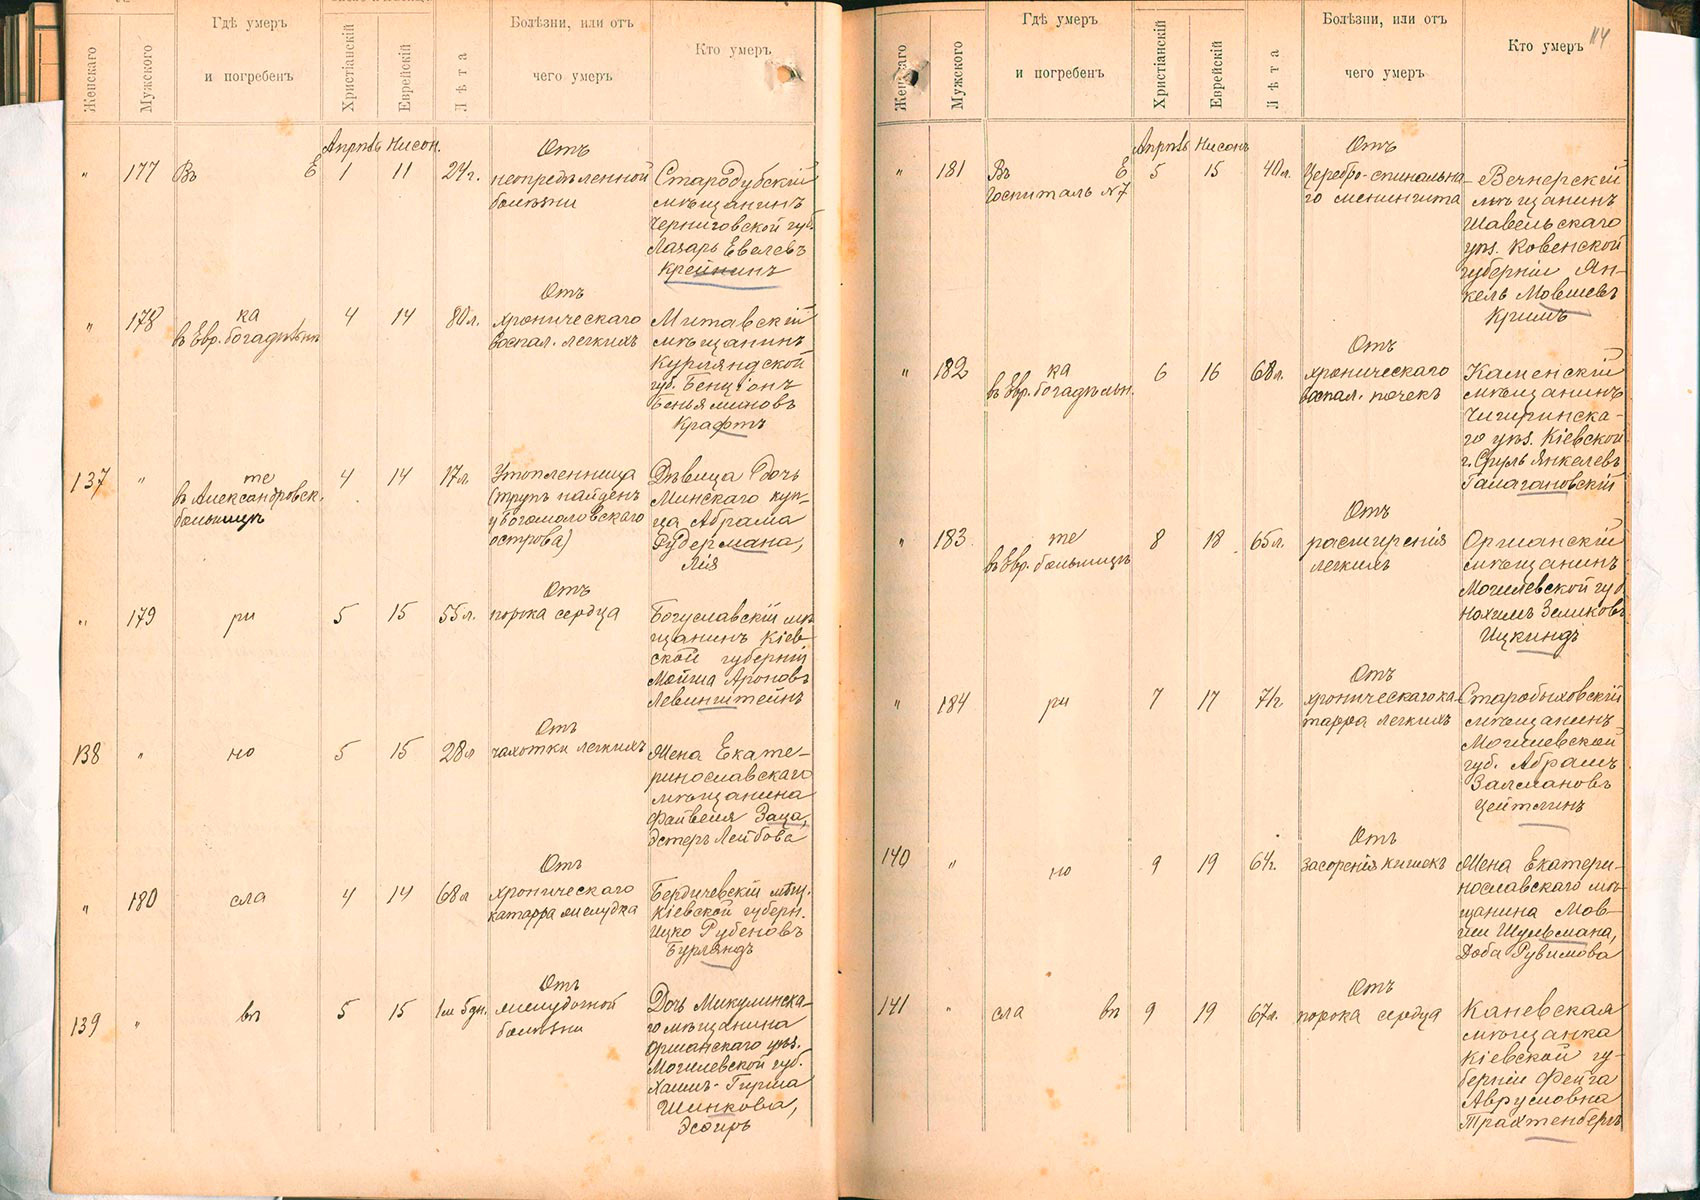 Женскаго
Мужского
Гдѣ умеръ
и погребенъ
Христіанскій
Еврейскій
Лѣта
Болѣзни, или отъ
чего умеръ
Кто умеръ
Апрѣль Нисон.
" 177 Въ Е 1 11 24г.
Отъ
неопредѣленной
болѣзни
Стародубскій
мѣщанинъ
Черниговской губ.
Лазарь Евелевъ
Крейнинъ
" 178 ка 4 14 80л.
в Евр. богадѣльн
Отъ
хроническаго
воспал. легкихъ
Митавскій
мѣщанинъ
Курляндской
губ. Бенціонъ
Беньяминовъ
Крафтъ
137 " те 4 14 17л.
въ Александровск.
больницѣ
Утопленница
(трупъ найденъ
у Богомоловскаго
острова)
Дѣвица дочь
Минскаго куп-
ца Абрама
Рудермана,
Лія
" 179 ри 5 15 55л.
Отъ
порока сердца
Богуславскій мѣ
щанинъ Кіев-
ской губерніи
Мойша Ароновъ
Левинштейнъ
138 " но 5 15 28л
Отъ
чахотки легкихъ
Жена Екате-
ринославскаго
мѣщанина
Файвеля Заца,
Эстеръ Лейбова
" 180 сла 4 14 68л
Отъ
хроническаго
катарра желудка
Бердичевскій мѣщ.
Кіевской губерн.
Ицко Рубеновъ
Бурляндъ
139 " въ 5 15 1м 5дн.
Отъ
желудочной
болѣзни
Дочь Микулинска-
го мѣщанина
Оршанскаго уѣз.
Могилевской губ.
Хаимъ-Гирша
Шинкова,
Эсфирь
Женскаго
Мужского
Гдѣ умеръ
и погребенъ
Христіанскій
Еврейскій
Лѣта
Болѣзни, или отъ
чего умеръ
Кто умеръ
114
Апрѣль Нисонъ
" 181 Въ Е 5 15 40л.
Госпиталь №7
Отъ
Церебро-спинальна-
го менингита
Вечнерскій
мѣщанинъ
Шавельскаго
уѣз. Ковенской
губерніи Ян-
кель Мовшевъ
Кримъ
" 182 ка 6 16 68л.
въ Евр. богадѣльн.
Отъ
хроническаго
воспал. почекъ
Каменскій
мѣщанинъ
Чигиринска-
го уѣз. Кіевской
г. Сруль Янкелевъ
Галагановскій
" 183 те 8 18 65л.
въ Евр. больницѣ
Отъ
расширенія
легкихъ
Оршанскій
мѣщанинъ
Могилевской губ
Нохимъ Зеликовъ
Ицкиндъ
" 184 ри 7 17 71г.
Отъ
хроническаго ка-
тарра легкихъ
Старобыховскій
мѣщанинъ
Могилевской
губ. Абрамъ
Залмановъ
Цейтлинъ
140 " но 9 19 64г.
Отъ
засоренія кишекъ
Жена Екатери-
нославскаго мѣ-
щанина Мов-
ши Шульмана,
Доба Рувимова
141 " сла въ 9 19 67л.
Отъ
порока сердца
Каневская
мѣщанка
Кіевской гу-
берніи Фейга
Аврумовна
Трахтенбергъ